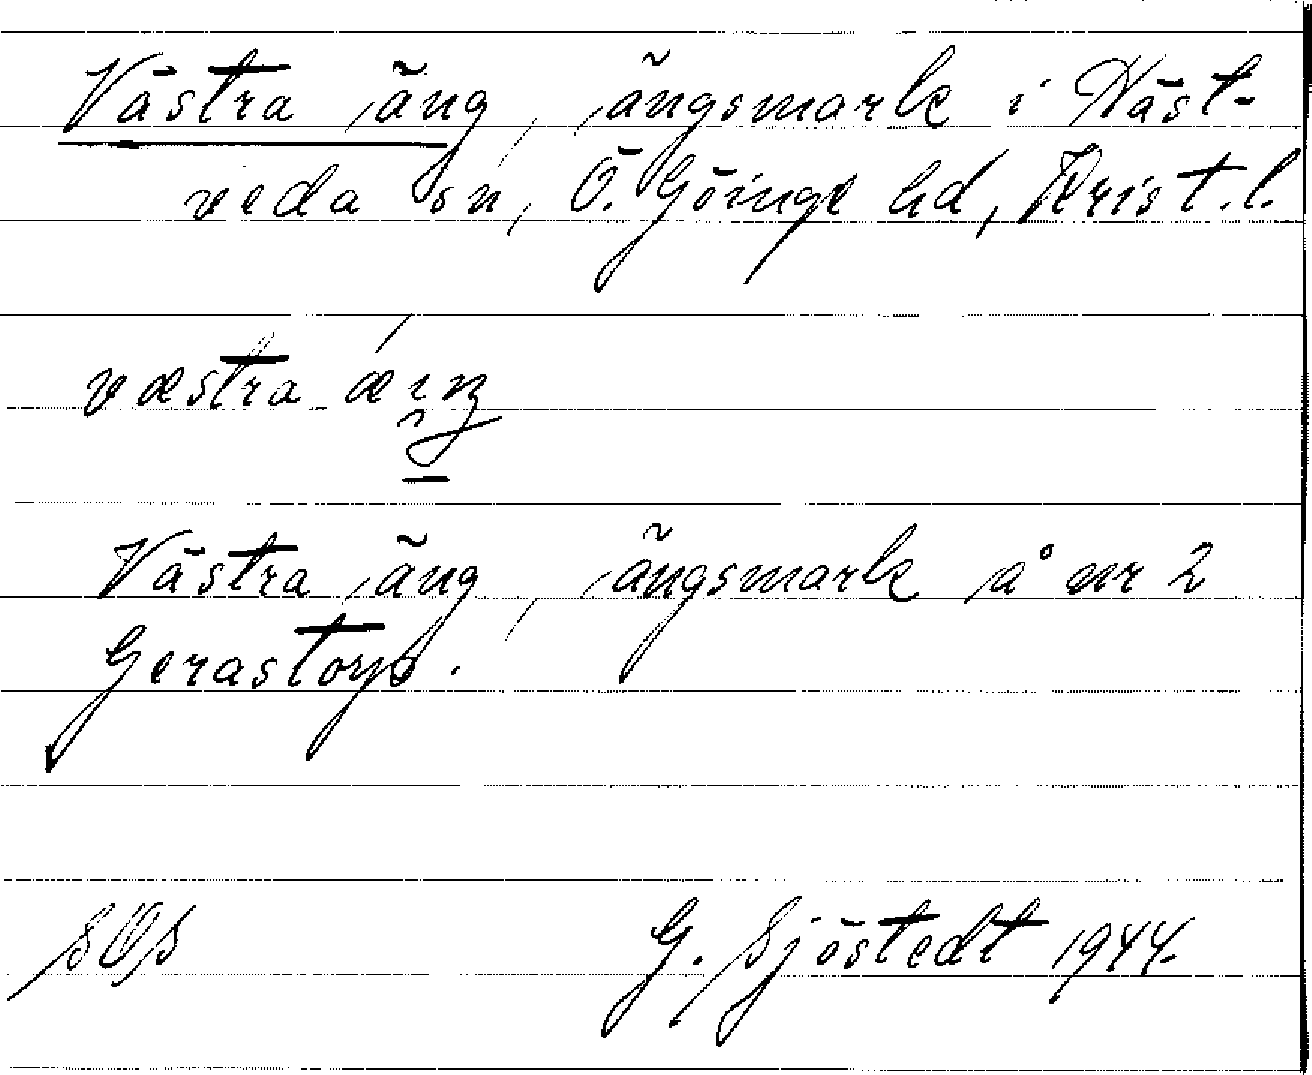 Västra äng, ängsmark i Häst-
veda sn, Ö. Göinge hd, Krist. l.
Västra äng, ängsmark å nr 2
Gerastorp.
G. Sjöstedt 1944.